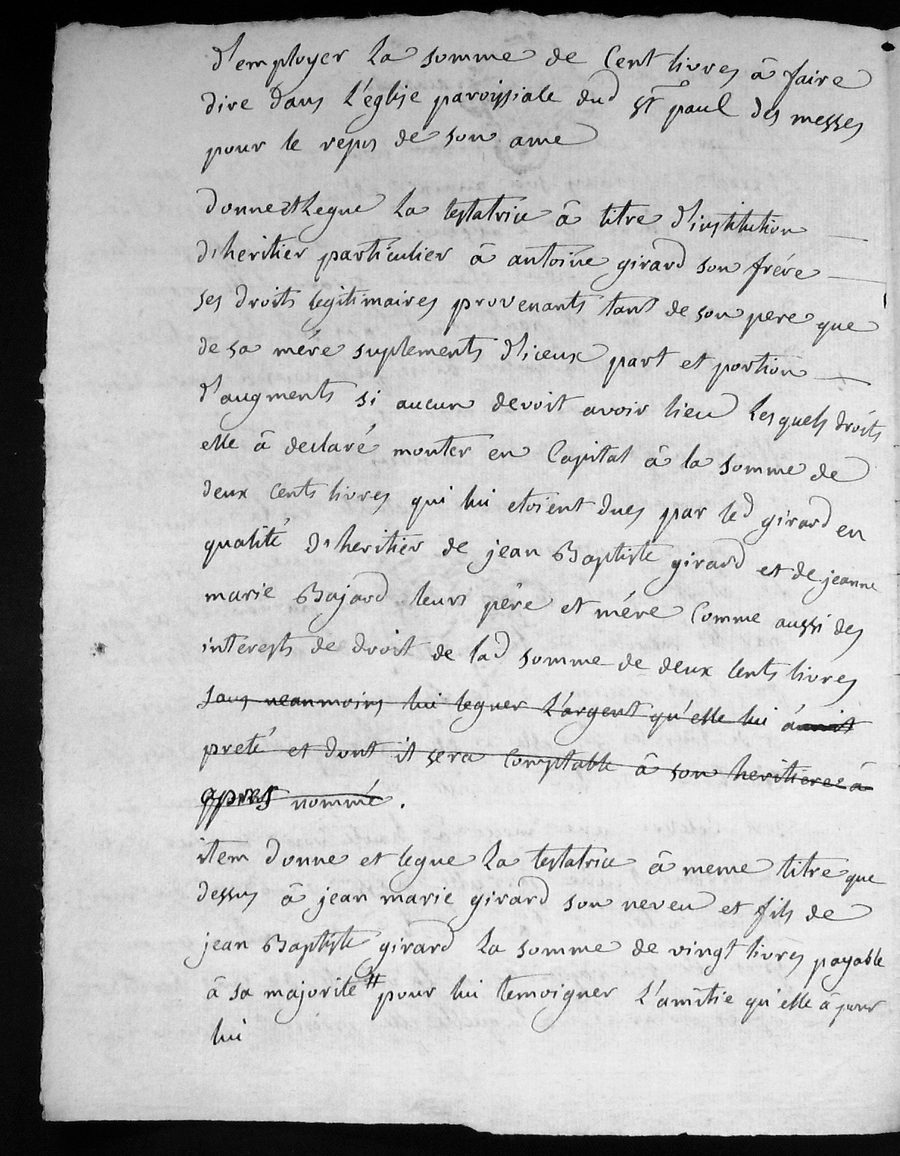 d'employer la somme de Cent livres â faire
dire dans l'eglise paroissiale dud st paul des messes
pour le repos de son ame
donne et legue la testatrice â titre d'institution
d'heritier particulier â antoine girard son frére
ses droits legitimaires provenants tant de son pere que
de sa mére suplements d'iceux part et portion
d'augments si aucun devoit avoir lieu lesquels droits
elle â declaré monter en Capital â la somme de
deux cents livres qui lui etoient dues par led girard en
qualité d'heritier de jean Baptiste girard et de jeanne
marie Bajard leurs pére et mére Comme aussi des
interests de droit de lad somme de deux Cents livres
sans neanmoins lui leguer l'argent qu'elle lui âvoit
preté et dont il sera Comptable â son heritiere cy â
apres nommé.
item donne et legue la testatrice â meme titre que
dessus â jean marie girard son neveu et fils de
jean Baptiste girard la somme de vingt livres payable
â sa majorité # pour lui temoigner l'amitie qu'elle â pour
lui